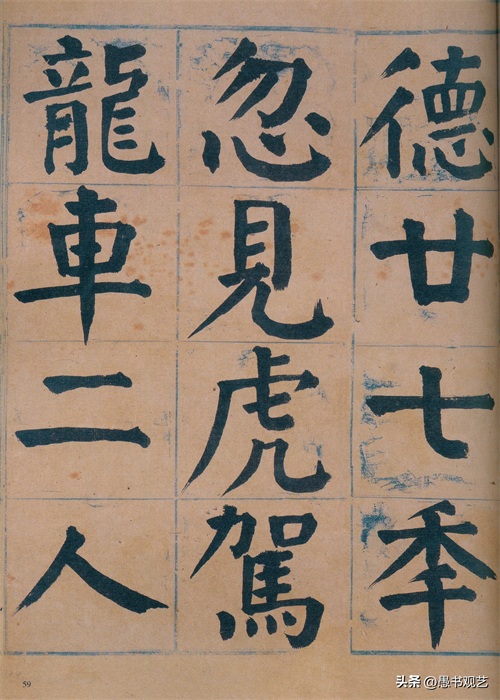 德廿七秊
忽見虎駕
龍車二人
59
头条 @愚书观艺